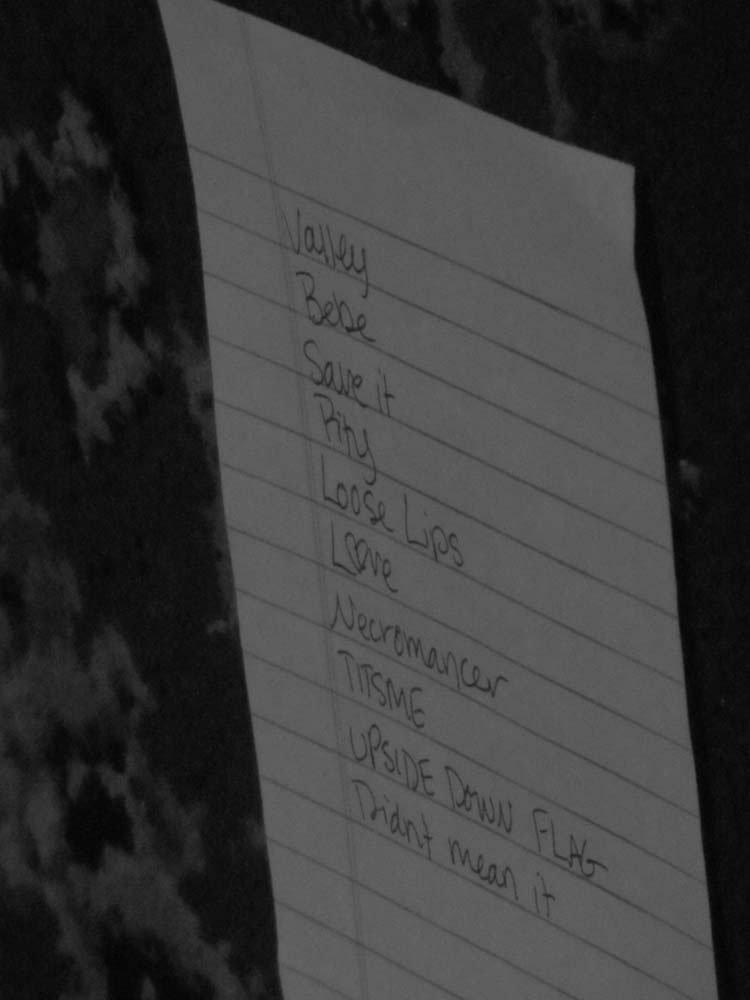 Valley
Bebe
Save it
Pity
Loose Lips
Love
Necromancer
TITSME
UPSIDE DOWN FLAG
Didnt mean it